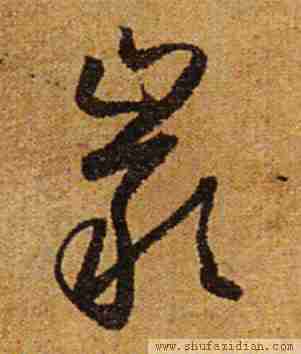 嚴
www.shufazidian.com